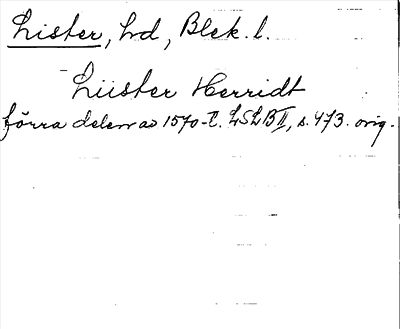 Lister, hd, Blek. l.
Liister Herridt
förra delen av 1570-t. LSLB II, s. 473. orig.